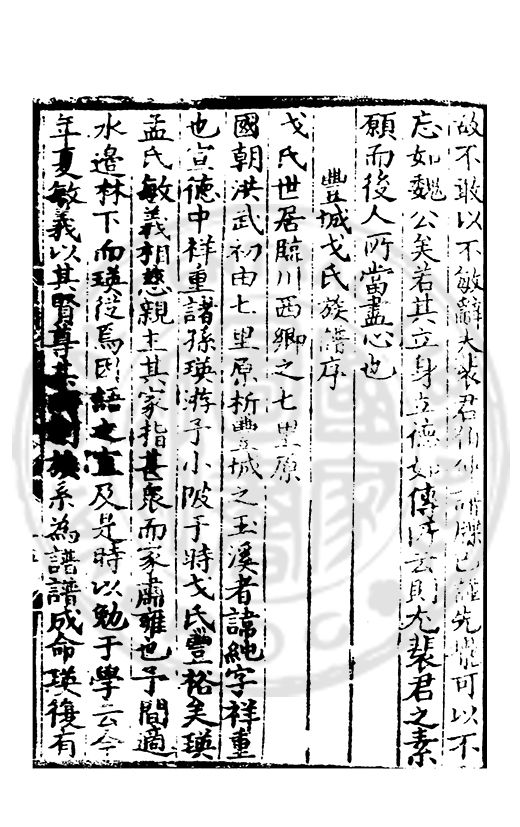 故不敢以不敏辭夫裴君譜牒已經先覺可以不
忘如魏公矣若其立身立德如傳所云則尤裴君之素
願而後人所當盡心也
豐城戈氏族譜序
戈氏世居臨川西鄉之七里原
國朝洪武初由七里原析豐城之玉溪者諱純字祥重
也宣德中祥重諸孫瑛游予小陂于時戈氏豐裕矣瑛
孟氏敏義相慈親主其家指甚衆而家肅雝也予間適
水邊林下而瑛從焉因語之宜及是時以勉于學云今
年夏敏義以其賢尊其族系為譜譜成命瑛復有